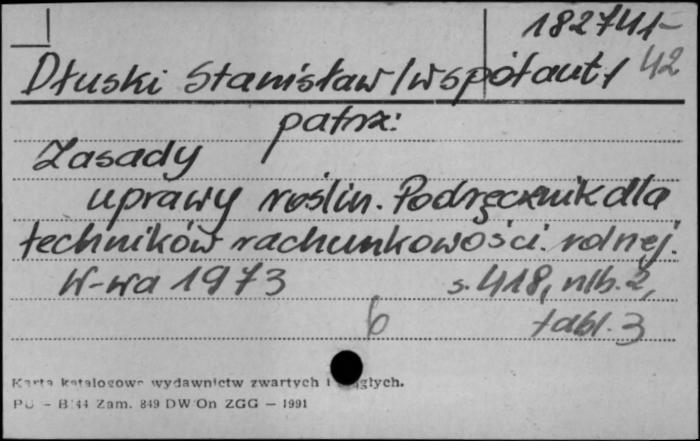 182741-
42
Dłuski Stanisław /współaut./
patrz:
Zasady
uprawy roślin. Podręcznik dla
techników rachunkowości rolnej.
W-wa 1973 s. 418, nlb. 2,
6 tabl. 3
Karta katalogowa wydawnictw zwartych i ciągłych.
PU - B 44 Zam. 849 DW On ZGG — 1991